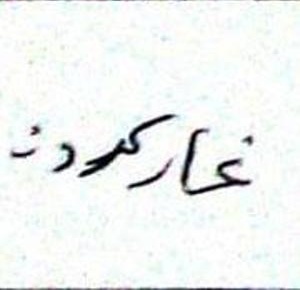 غار کردن